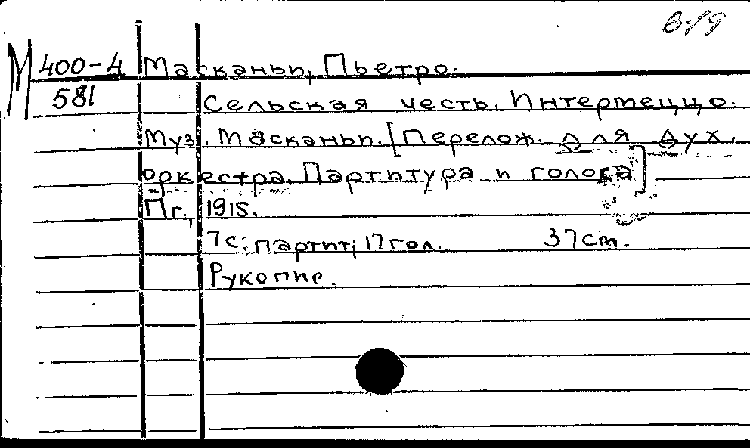 М 400-4 Масканьи, Пьетро.
581 Сельская честь. Интермеццо.
Муз. Масканьи. [Перелож. для дух.
оркестра. Партитура и голоса]
Пг., 1915.
7с. партит; 17 гол. 37см.
Рукопис.